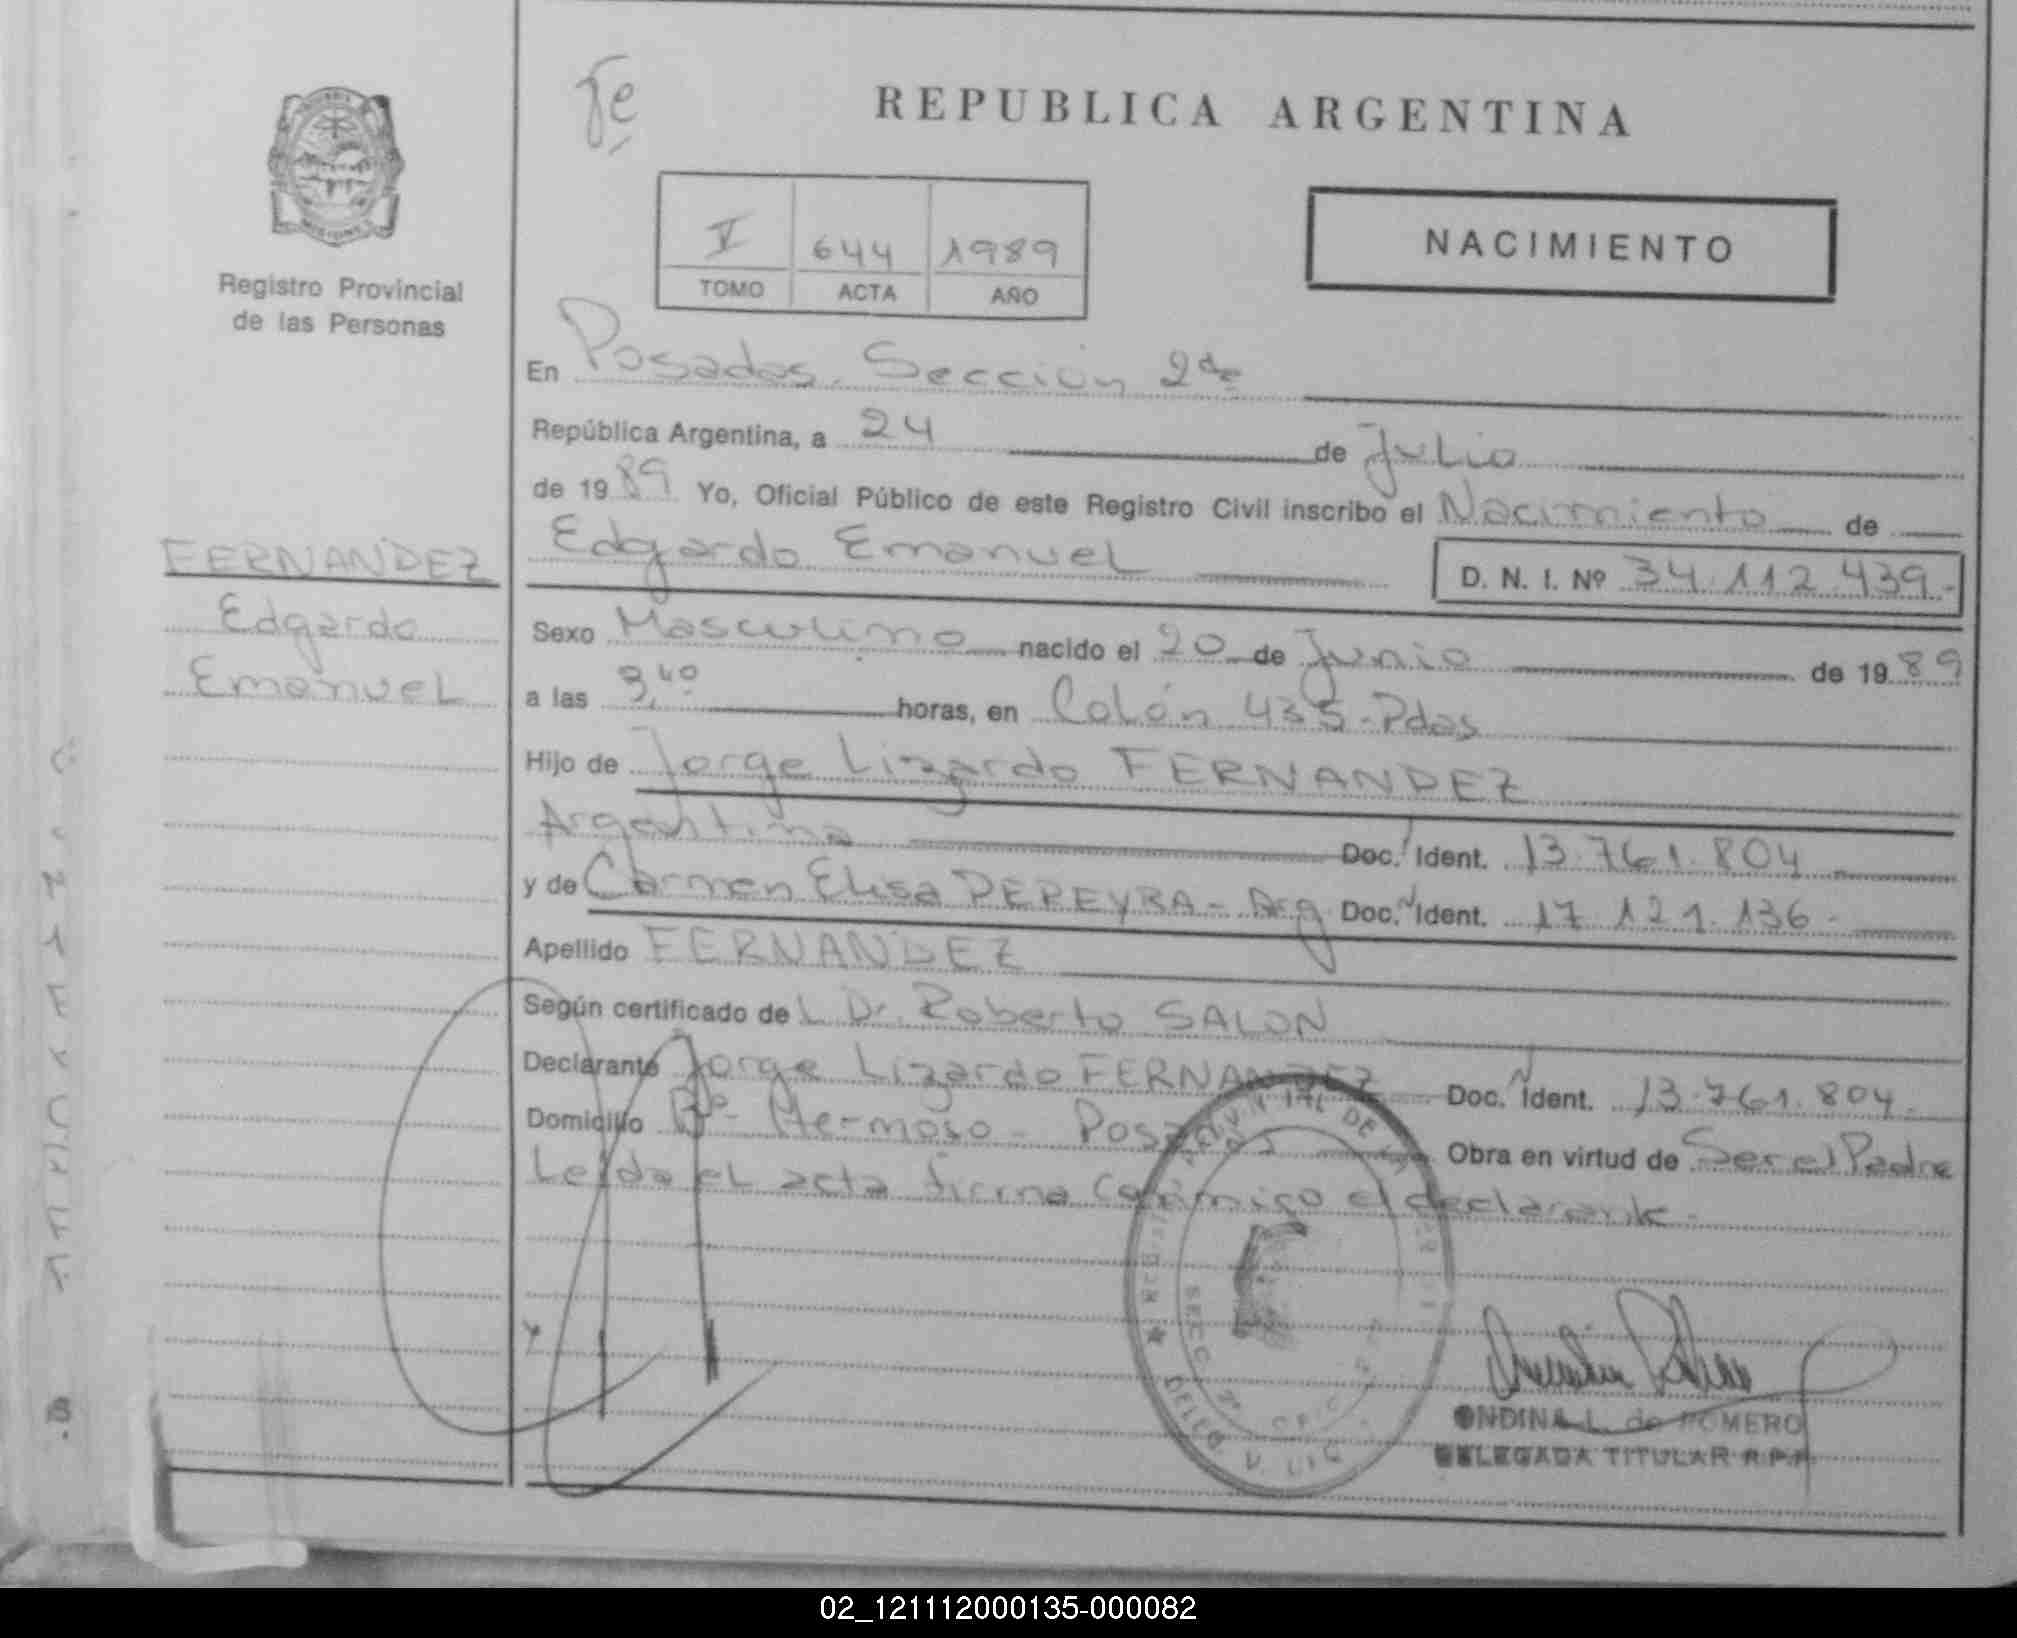 Registro Provincial
de las Personas
FERNANDEZ
Edgardo
Emanuel
REPUBLICA ARGENTINA
V 644 1989
TOMO ACTA AÑO
NACIMIENTO
En Posadas. Sección 2da
República Argentina, a 24 de Julio
de 1989 Yo, Oficial Público de este Registro Civil inscribo el Nacimiento de
Edgardo Emanuel D. N. I. Nº 34.112.439.-
Sexo Masculino nacido el 20 de Junio de 1989
a las 3,40 horas, en Colón 435-Pdas
Hijo de Jorge Lizardo FERNANDEZ
Argentina Doc. Ident. 13.761.804
y de Carmen Elisa PEREYRA - Arg Doc. Ident. 17.121.136.-
Apellido FERNANDEZ
Según certificado del Dr. Roberto SALON
Declarante Jorge Lizardo FERNANDEZ Doc. Ident. 13.761.804.
Domicilio Bº Hermoso - Posadas Obra en virtud de Ser el Padre
Leída el acta firma conmigo el declarante.-
ONDINA L. de ROMERO
DELEGADA TITULAR R.P.P.
02_121112000135-000082